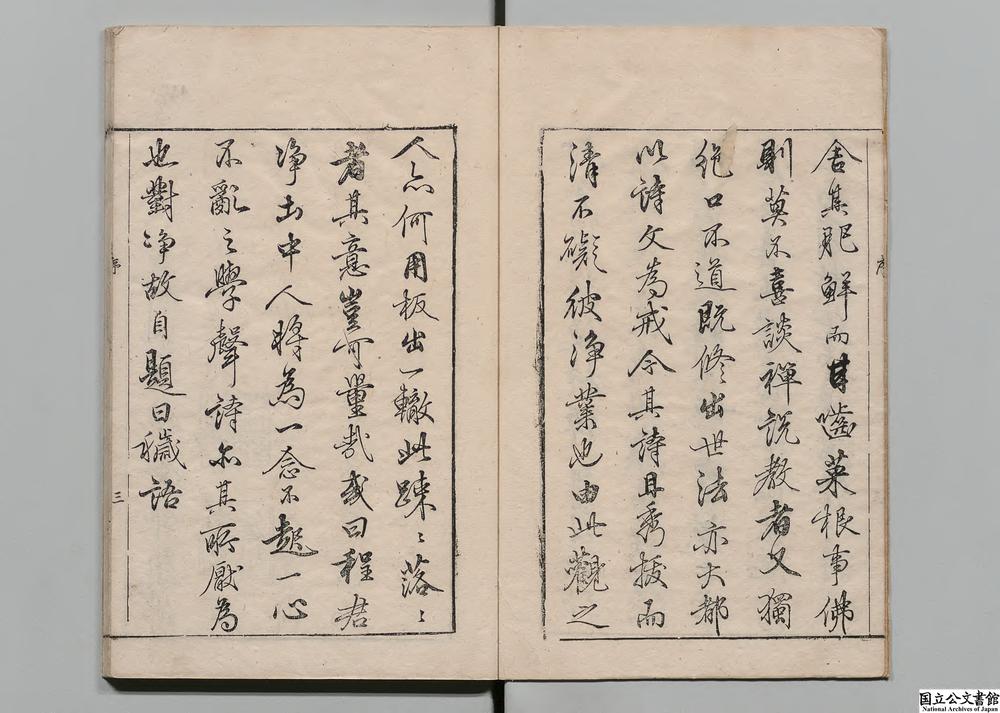 舍其肥鮮而甘嚙菜根事佛
則莫不喜談禪説教者又獨
絶口不道既修出世法亦大都
以詩文為戒今其詩且秀拔而
清不礙彼淨業也由此觀之
序
人亦何用板出一轍此踈〻落〻
者其意豈可量哉或曰程君
淨土中人將為一念不起一心
不亂之學聲詩亦其所厭為
也對淨故自題曰穢語
序
三
国立公文書館
National Archives of Japan